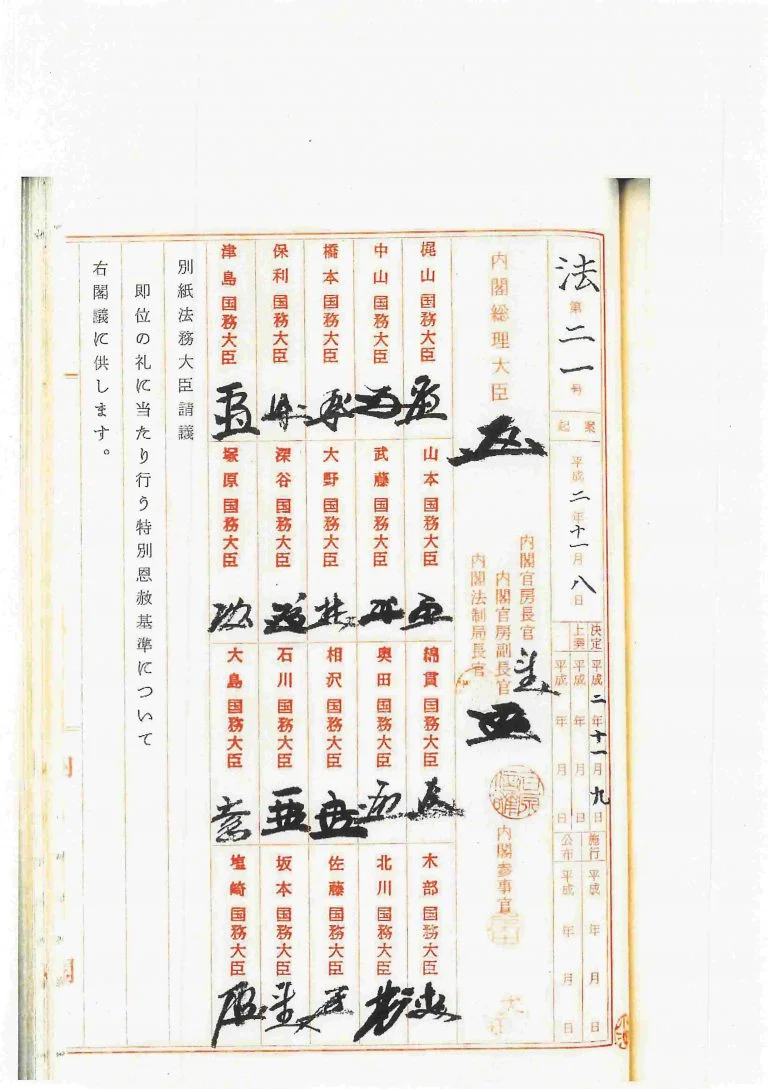 法第二一号
起案 平成二年十一月八日
決定 平成二年十一月九日
上奏 平成 年 月 日
平成 年 月 日
施行 平成 年 月 日
公布 平成 年 月 日
内閣総理大臣
内閣官房長官
内閣官房副長官
内閣法制局長官
内閣参事官
梶山国務大臣
山本国務大臣
綿貫国務大臣
木部国務大臣
中山国務大臣
武藤国務大臣
奥田国務大臣
北川国務大臣
橋本国務大臣
大野国務大臣
相沢国務大臣
佐藤国務大臣
保利国務大臣
深谷国務大臣
石川国務大臣
坂本国務大臣
津島国務大臣
塚原国務大臣
大島国務大臣
塩崎国務大臣
別紙法務大臣請議
即位の礼に当たり行う特別恩赦基準について
右閣議に供します。